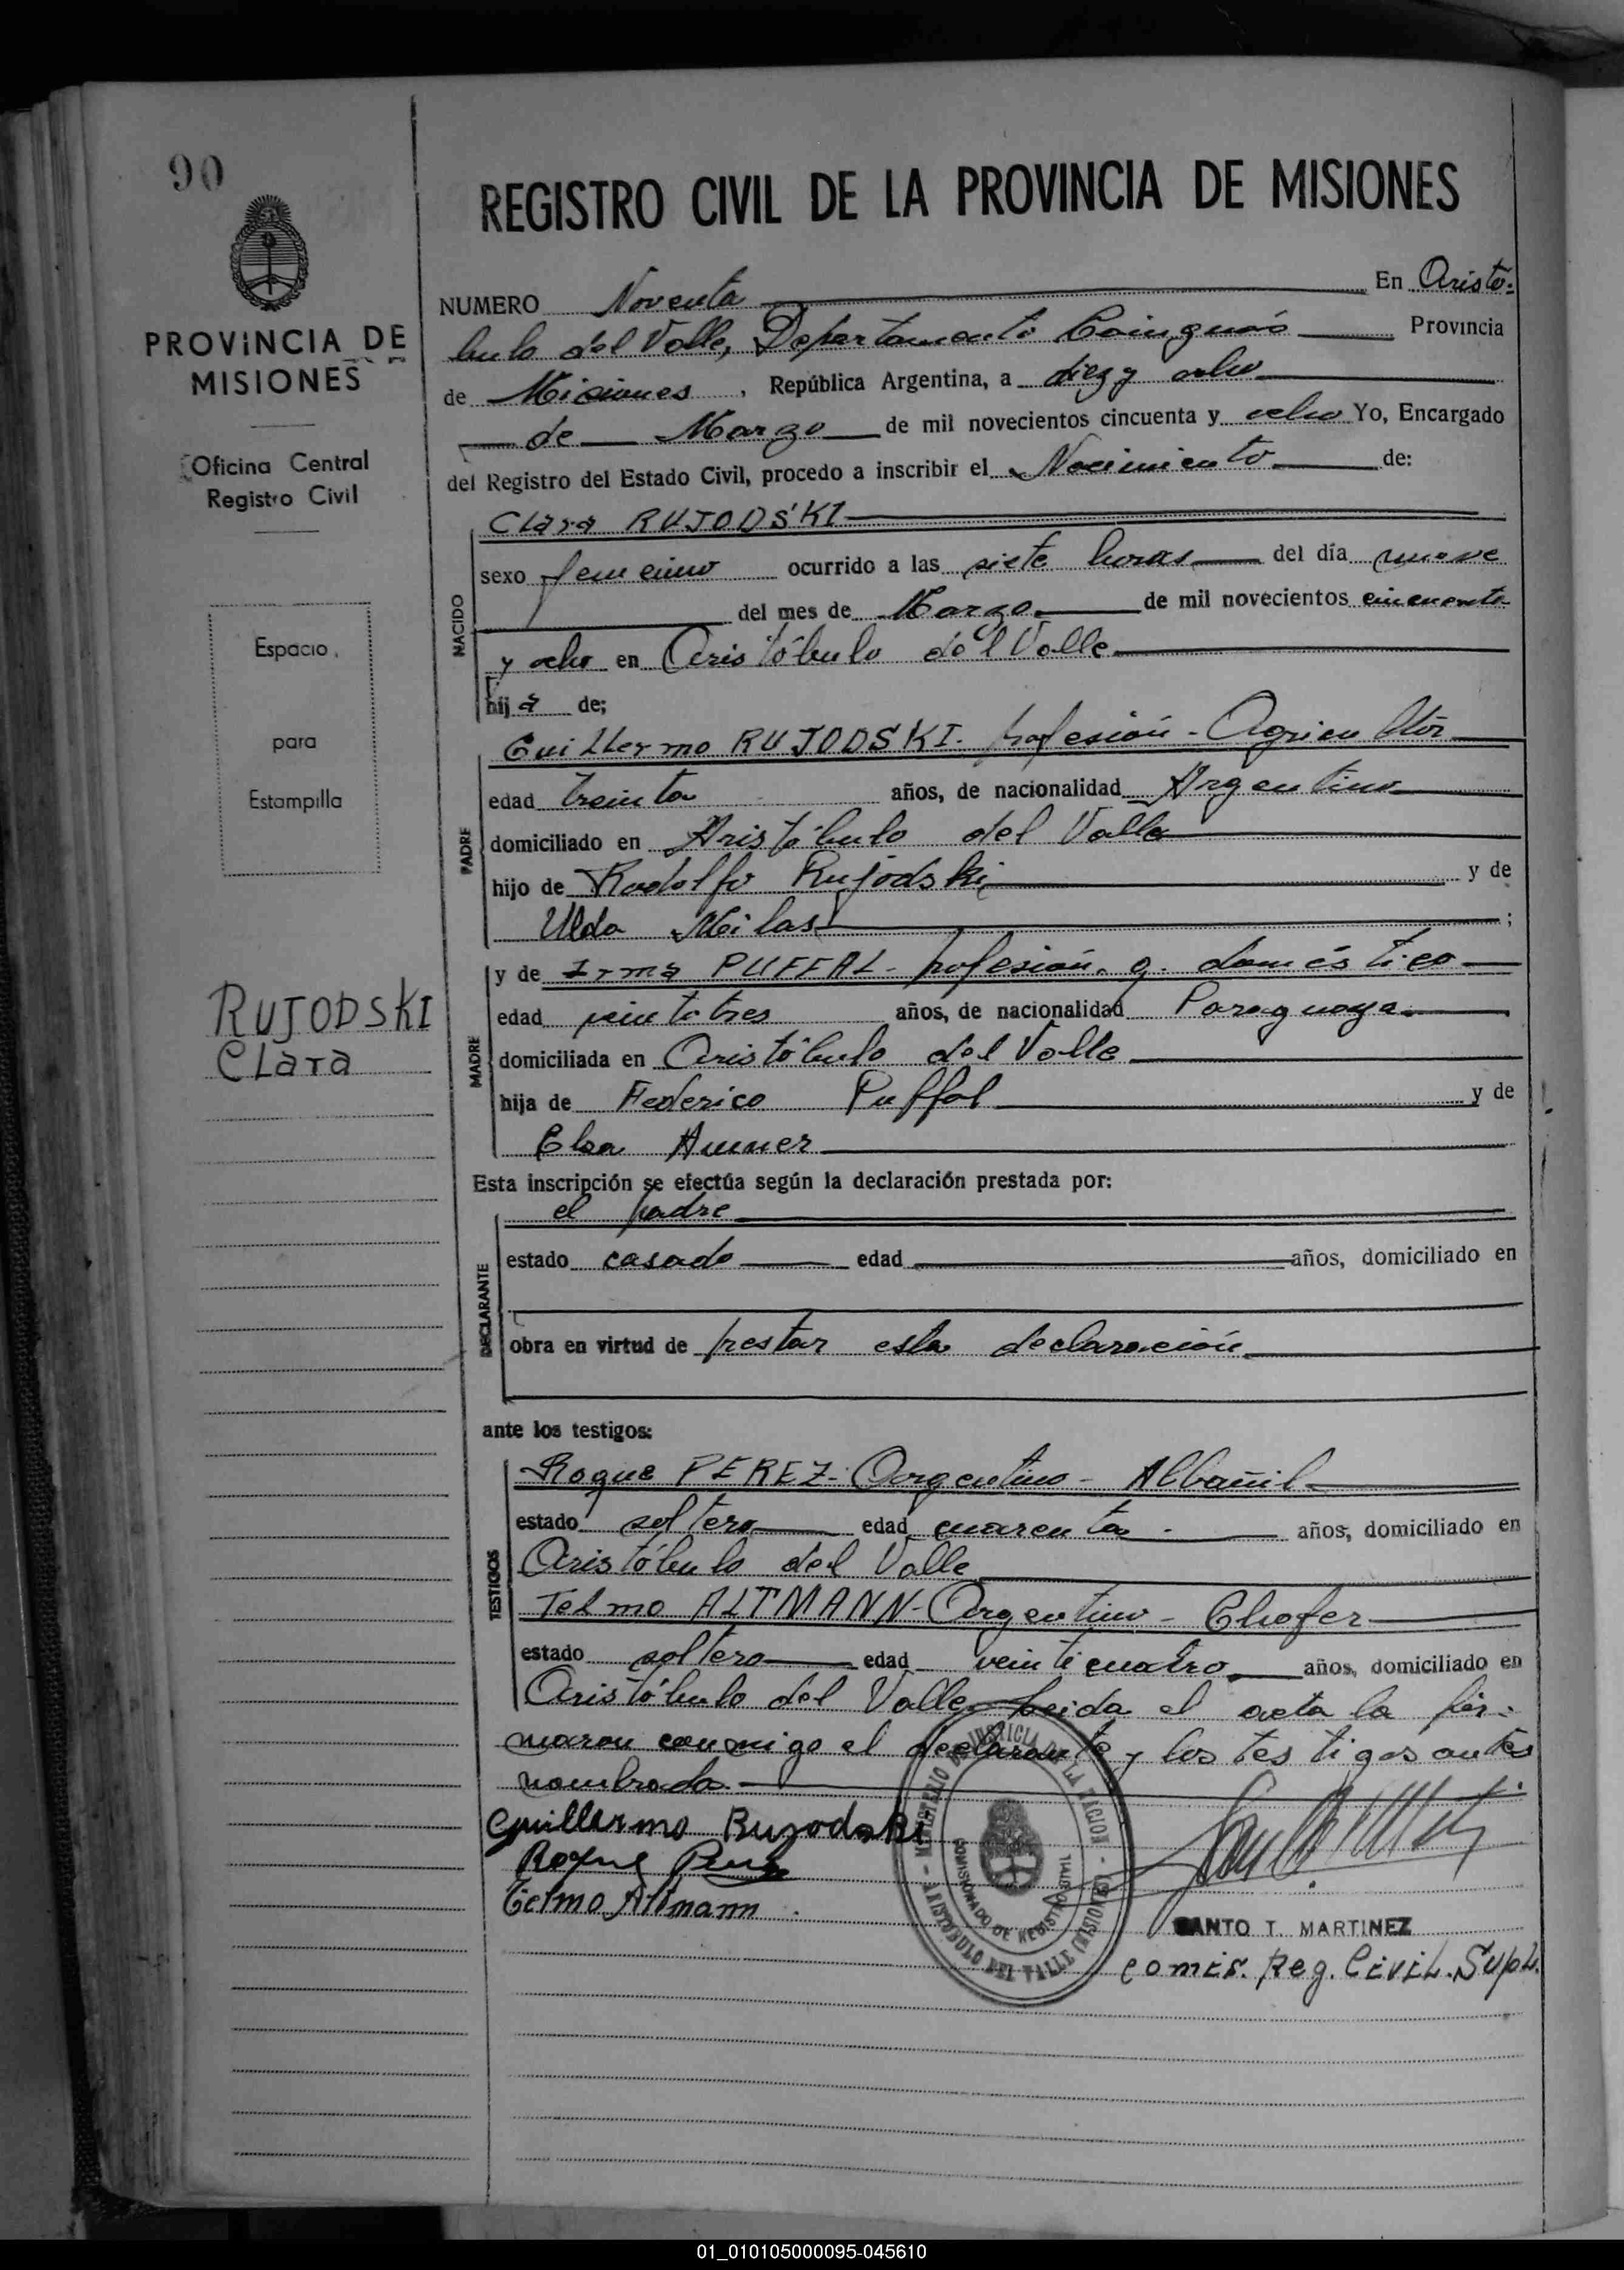 90
REGISTRO CIVIL DE LA PROVINCIA DE MISIONES
PROVINCIA DE
MISIONES
Oficina Central
Registro Civil
Espacio
para
Estampilla
RUJODSKI
Clara
NUMERO Noventa En Aristó-
bulo del Valle, Departamento Cainguás Provincia
de Misiones, República Argentina, a diez y ocho
de Marzo de mil novecientos cincuenta y ocho Yo, Encargado
del Registro del Estado Civil, procedo a inscribir el Nacimiento de:
NACIDO
Clara RUJODSKI
sexo femenino ocurrido a las siete horas del día nueve
del mes de Marzo de mil novecientos cincuenta
y ocho en Aristóbulo del Valle
hija de;
PADRE
Guillermo RUJODSKI. profesión - Agricultor
edad treinta años, de nacionalidad Argentina
domiciliado en Aristóbulo del Valle
hijo de Rodolfo Rujodski y de
Ulda Milas;
MADRE
y de Irma PUFFAL - profesión q. doméstico
edad veintitres años, de nacionalidad Paraguaya
domiciliada en Aristóbulo del Valle
hija de Federico Puffal y de
Elsa
Esta inscripción se efectúa según la declaración prestada por:
DECLARANTE
el padre
estado casado edad años, domiciliado en
obra en virtud de prestar esta declaración
ante los testigos:
TESTIGOS
Roque PEREZ - Argentino - Albañil
estado soltero edad cuarenta años, domiciliado en
Aristóbulo del Valle
Telmo ALTMANN - Argentino - Chofer
estado soltero edad veinticuatro años, domiciliado en
Aristóbulo del Valle, leida el acta la fir-
maron conmigo el declarante y los testigos antes
nombrado.
Guillermo Rujodski
Roque Perez
Telmo Altmann
MINISTERIO DE JUSTICIA DE LA NACION - ARISTOBULO DEL VALLE (MISIONES)
COMISIONADO DE REGISTRO CIVIL
SANTO T. MARTINEZ
Comis. Reg. Civil. Supl.
01_010105000095-045610